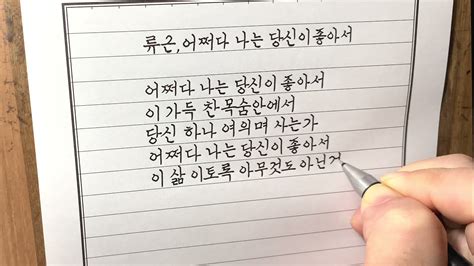 류근, 어쩌다 나는 당신이 좋아서
어쩌다 나는 당신이 좋아서
이 가득 찬 목숨안에서
당신 하나 여의며 사는가
어쩌다 나는 당신이 좋아서
이 삶 이토록 아무것도 아닌